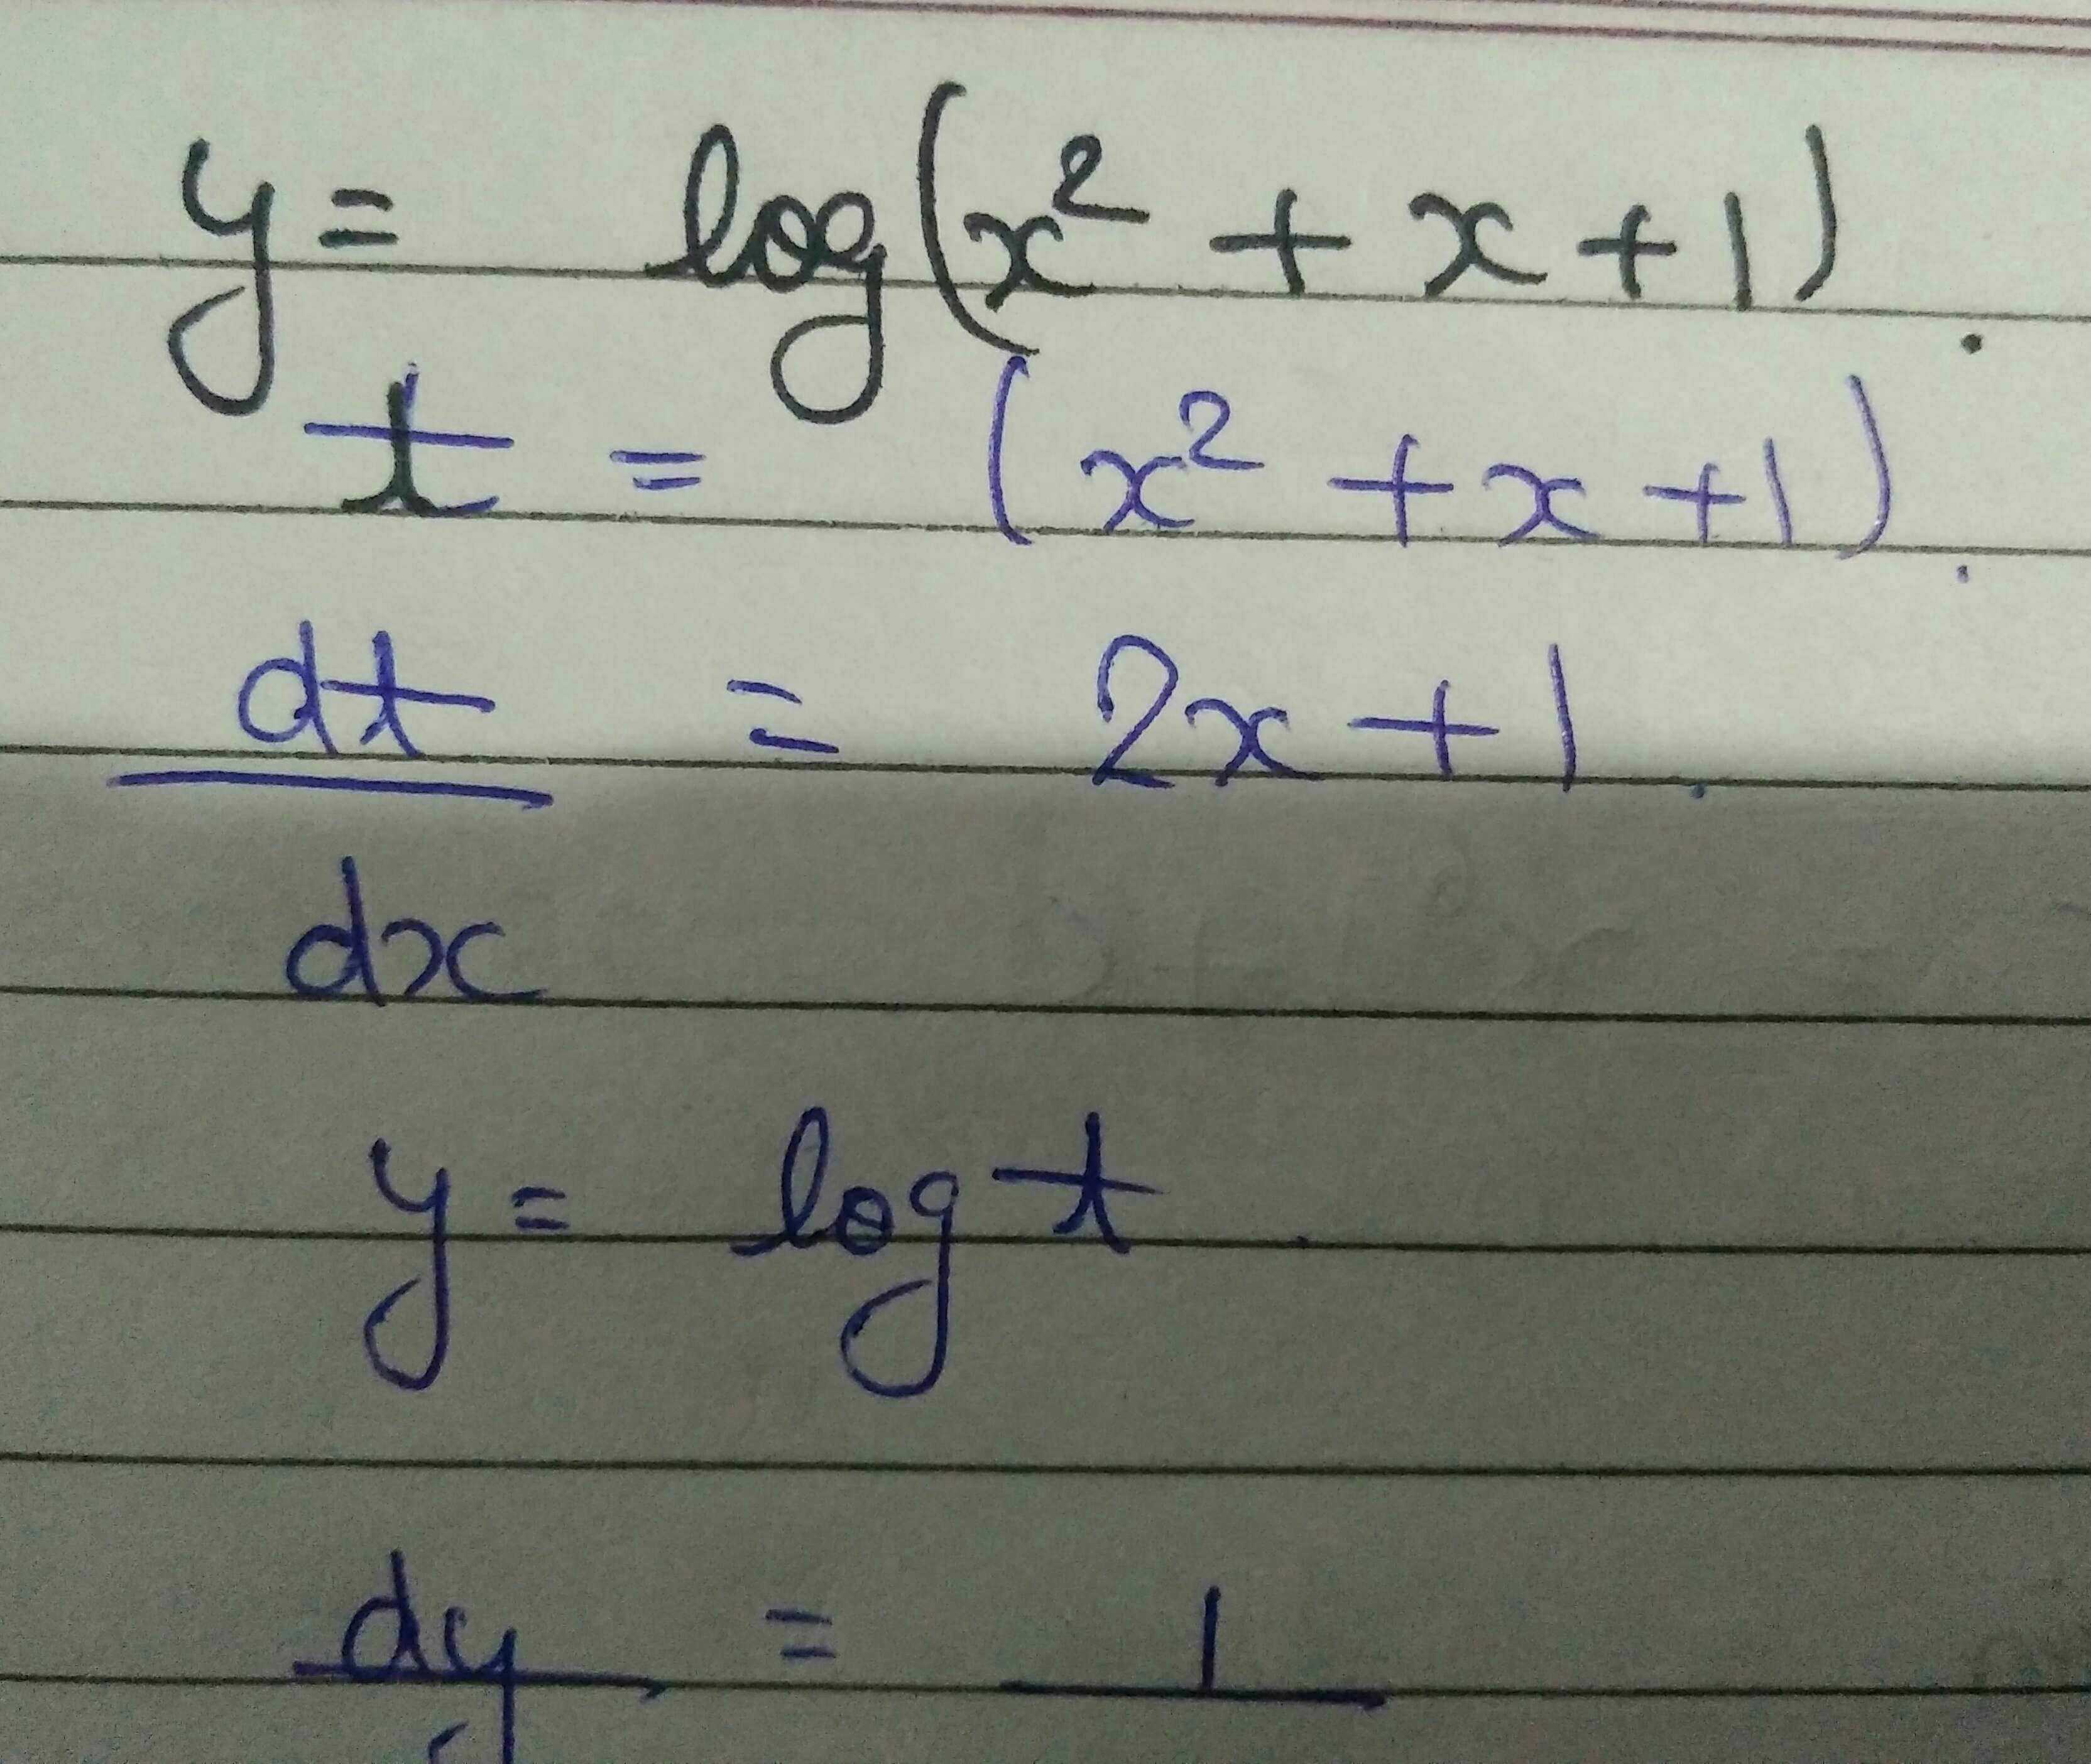 y = log(x² + x + 1).
t = (x² + x + 1).
dt = 2x + 1.
dx
y = log t.
dy = 1